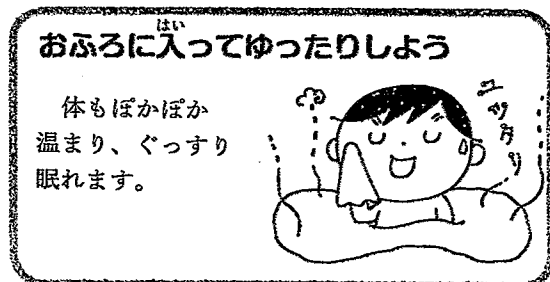 おふろに入ってゆったりしよう
はい
体もぽかぽか
温まり、ぐっすり
眠れます。
ユッタリ